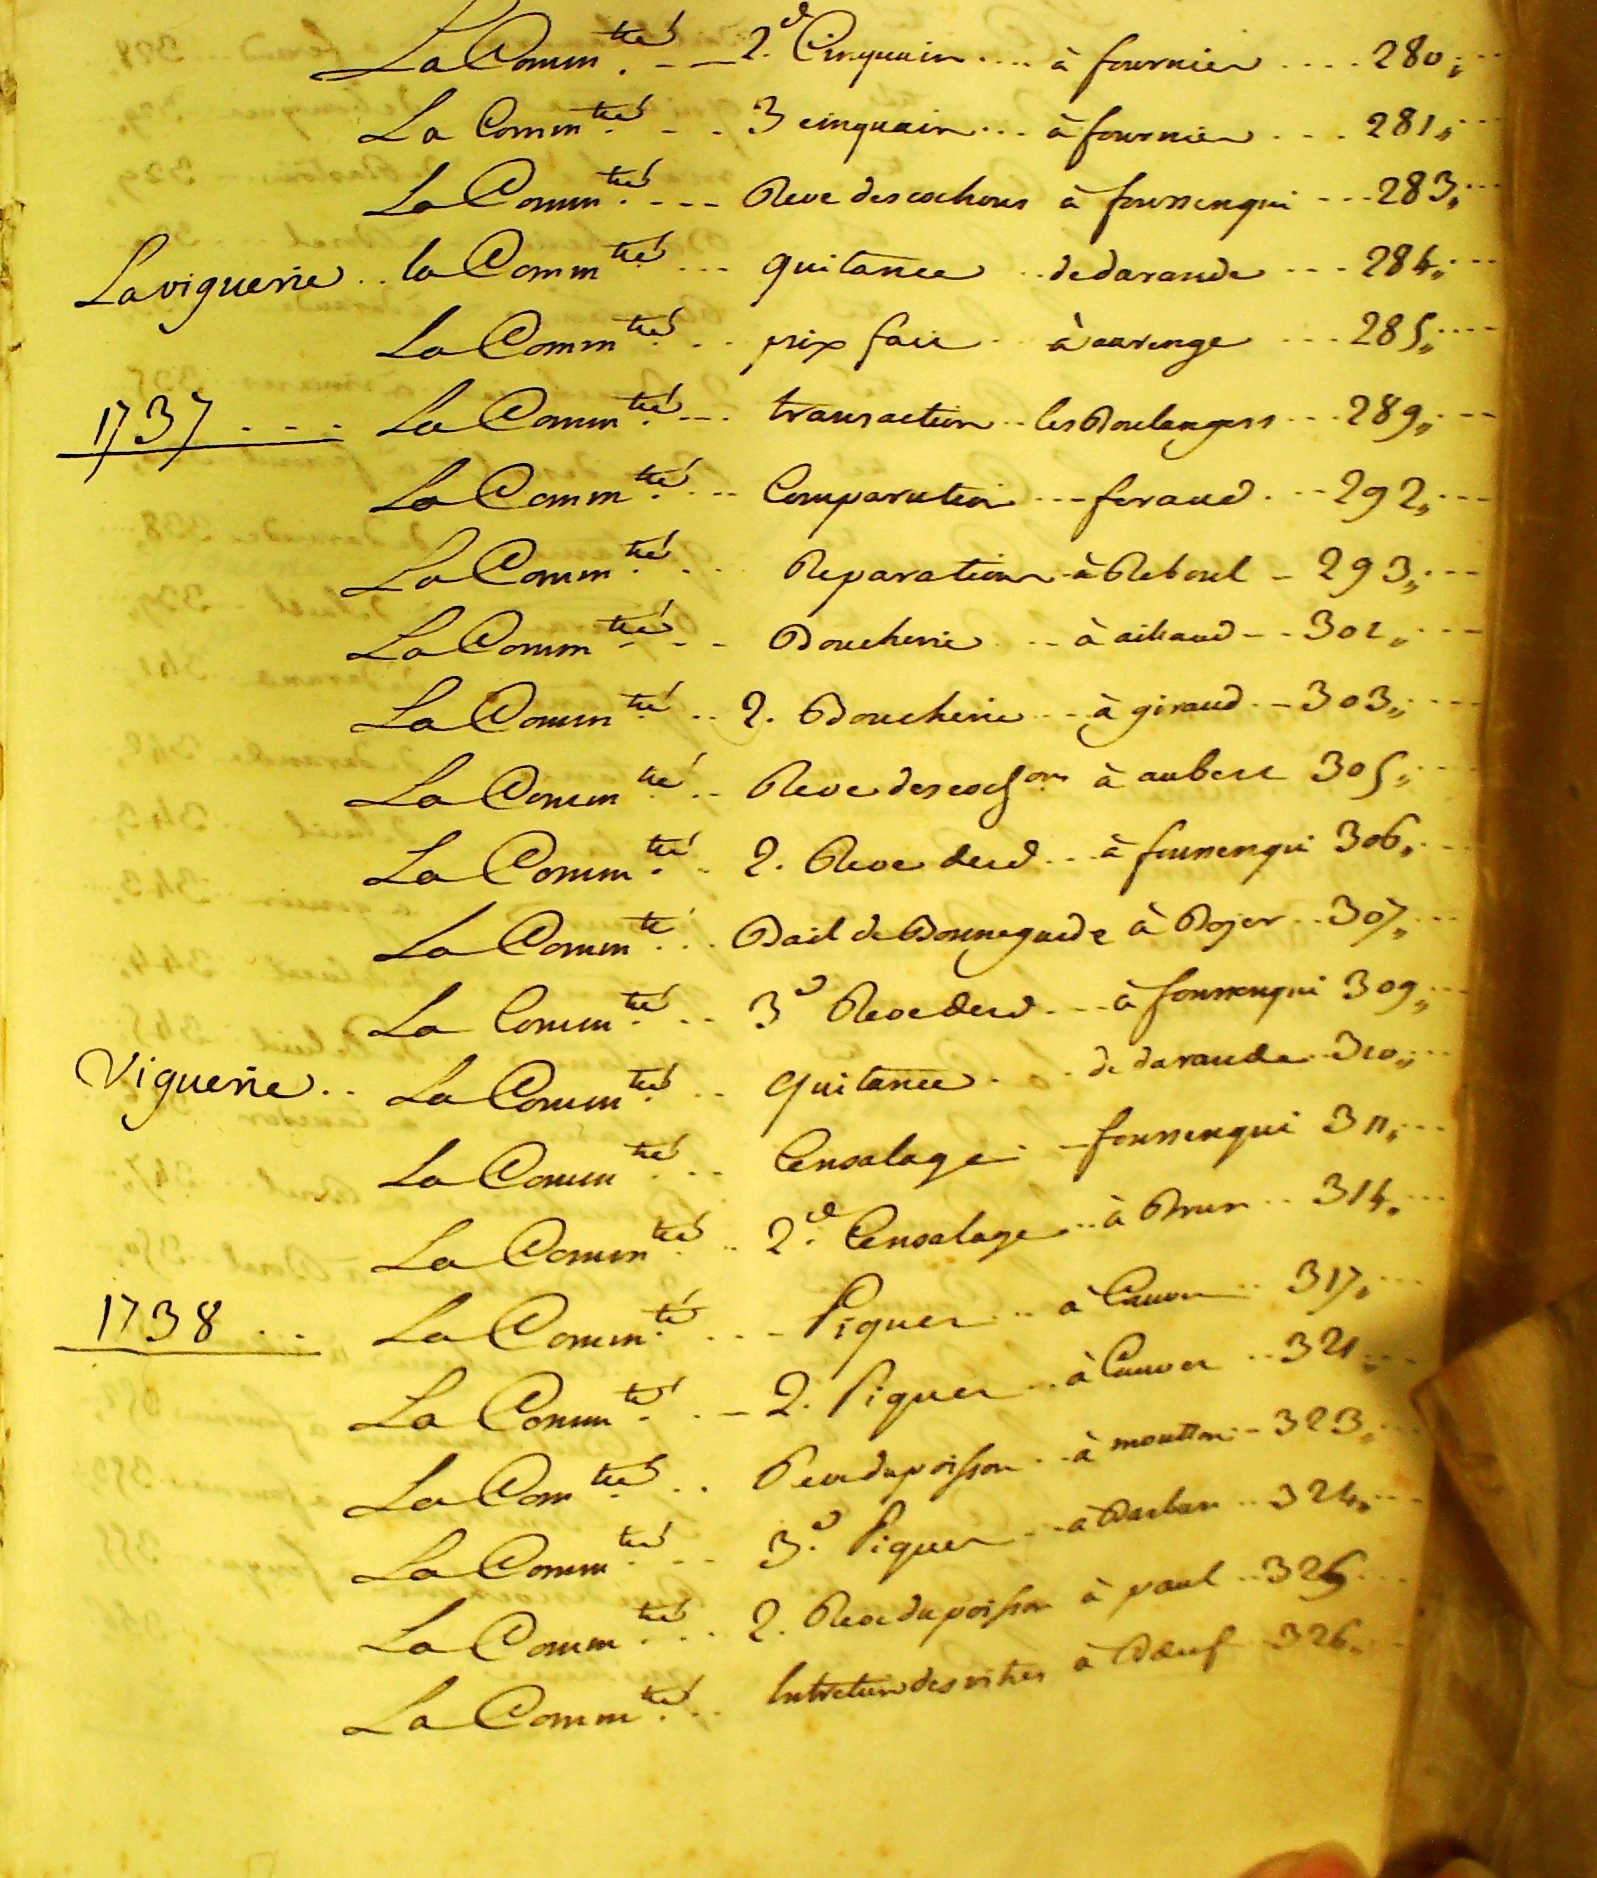 La Comm.té - - 2.d Cinquain .... à fournier .... 280,,
La Comm.té - - 3 cinquain ... à fournier ... 281,,
La Comm.té - - - Reve des cochons à foussenqui --- 283,,
La viguerie .. la Comm.té ... quitance .. de daraude --- 284,,
La Comm.té .. prix fait .. à aurenge ... 285,,
1737 ... La Comm.té --- transaction .. les Boulangers ... 289,,
La Comm.té ... Comparution --- feraud ... 292,,
La Comm.té ... Reparation - à Reboul - 293,,
La Comm.té - - - Boucherie ... à aillaud - - 302,,
La Comm.té .. 2. Boucherie .. à giraud - - 303,,
La Comm.té .. Reve des coch.ons à aubert 305,,
La Comm.té .. 2. Reve desd ... à foussenqui 306,,
La Comm.té .. Bail de Bonneguide à Bojer .. 307,,
La Comm.té .. 3.e Reve desd ... à foussenqui 309,,
Viguerie .. La Comm.té .. quitance .. de daraude .. 310,,
La Comm.té ... Censalage - foussenqui 311,,
La Comm.té .. 2.d Censalage .. à Brun .. 314,,
1738 ... La Comm.té ... Piquet ... à 317,,
La Comm.té . - 2. Piquet .. à .. 321,,
La Com.té .. Reve du poisson .. à moutton - 323,,
La Comm.té ... 3.e Piquet .. à Barban .. 324,,
La Comm.té ... 2. Reve du poisson à paul .. 325
La Comm.té .. Entretien des vitres à Bœuf 326,,